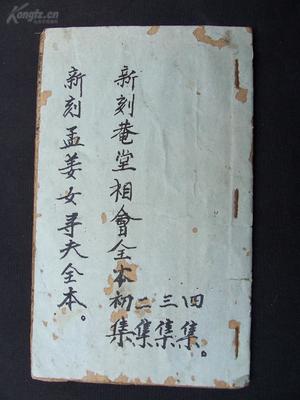 新刻菴堂相會全本初集二集三集四集。
新刻孟姜女寻夫全本。
Kongfz.cn